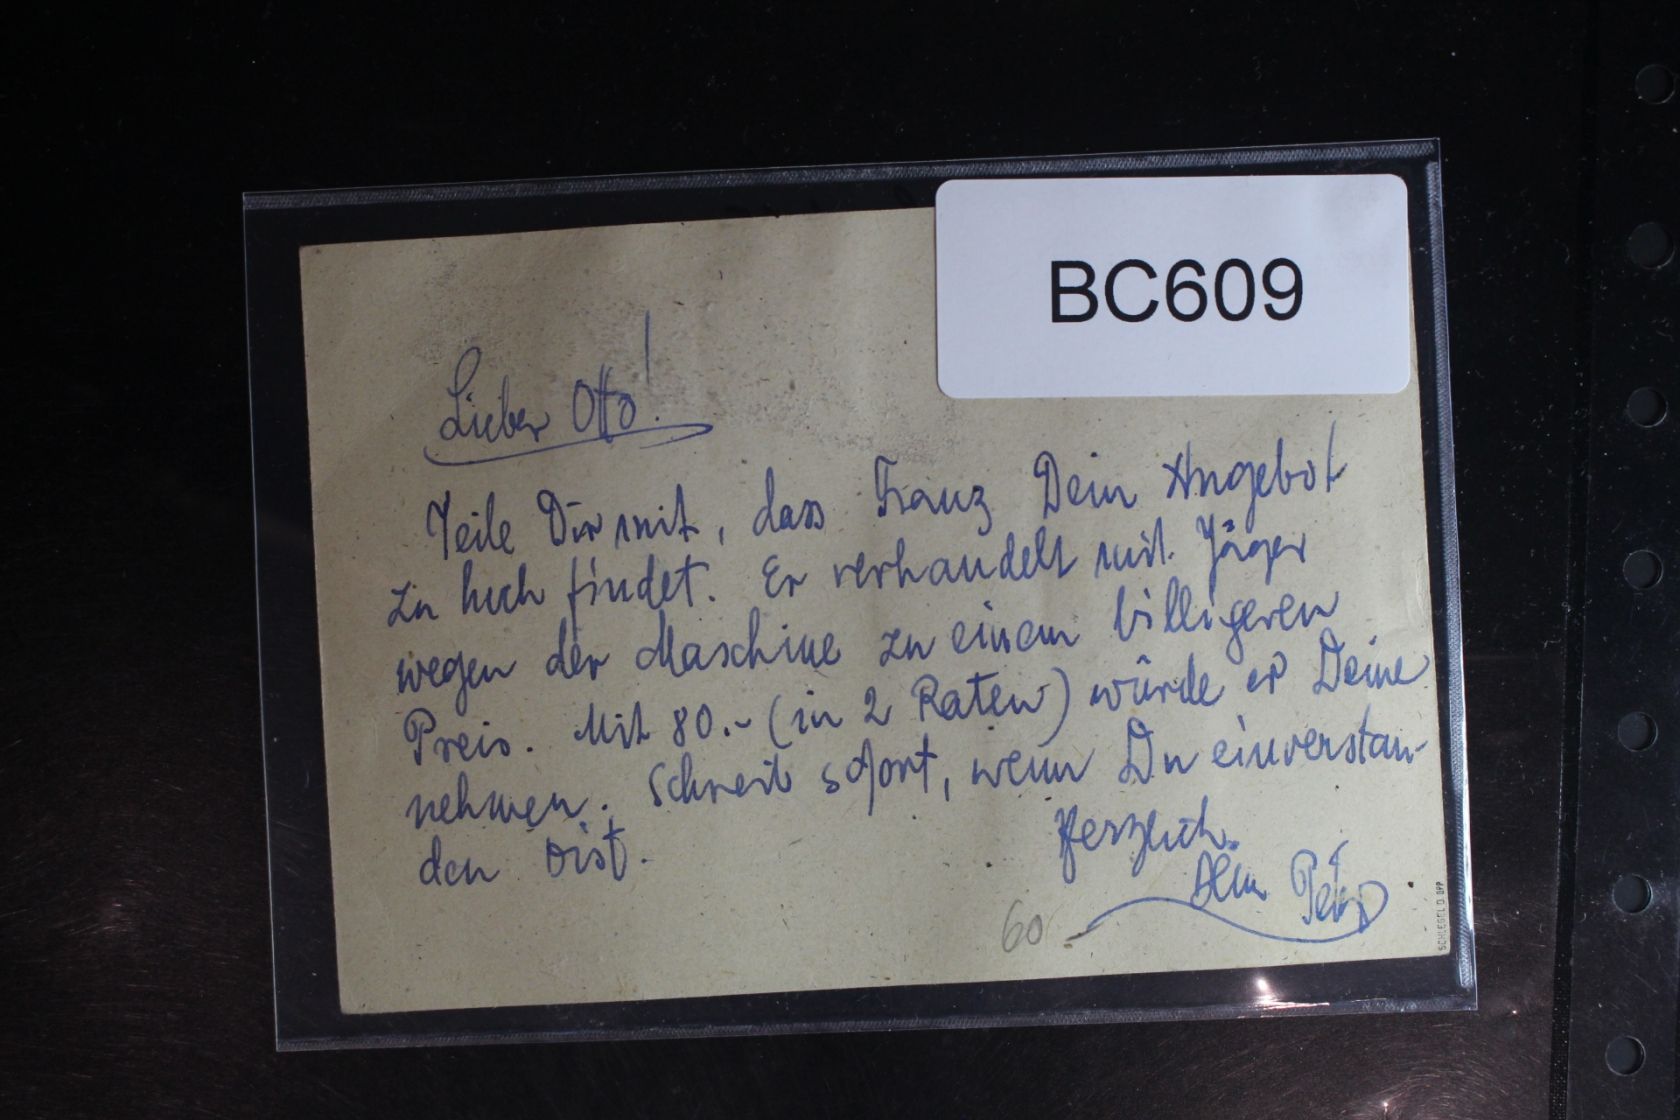 BC609
Lieber Otto!
Teile Dir mit, dass Franz Dein Angebot
zu hoch findet. Er verhandelt mit Jäger
wegen der Maschine zu einem billigeren
Preis. Mit 80.- (in 2 Raten) würde er Deine
nehmen. Schreib sofort, wenn Du einverstan-
den bist.
Herzlich.
Dein Peter
60
SCHLEGEL D. BPP